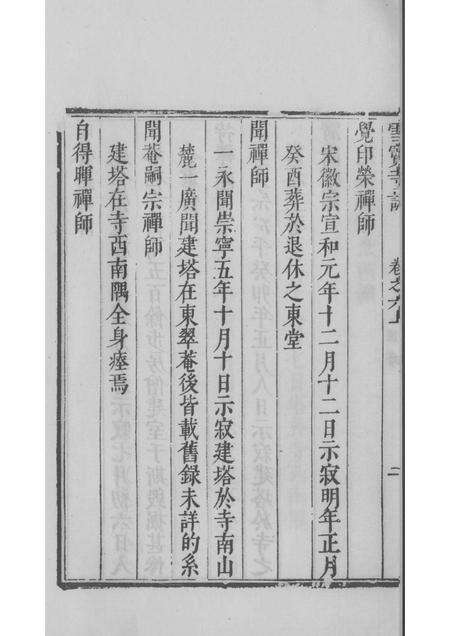 雪竇寺誌 卷之六上 二
覺印榮禪師
宋徽宗宣和元年十二月十二日示寂明年正月
癸酉葬於退休之東堂
聞禪師
一永聞崇寧五年十月十日示寂建塔於寺南山
麓一廣聞建塔在東翠菴後皆載舊録未詳的系
聞菴嗣宗禪師
建塔在寺西南隅全身瘞焉
自得暉禪師